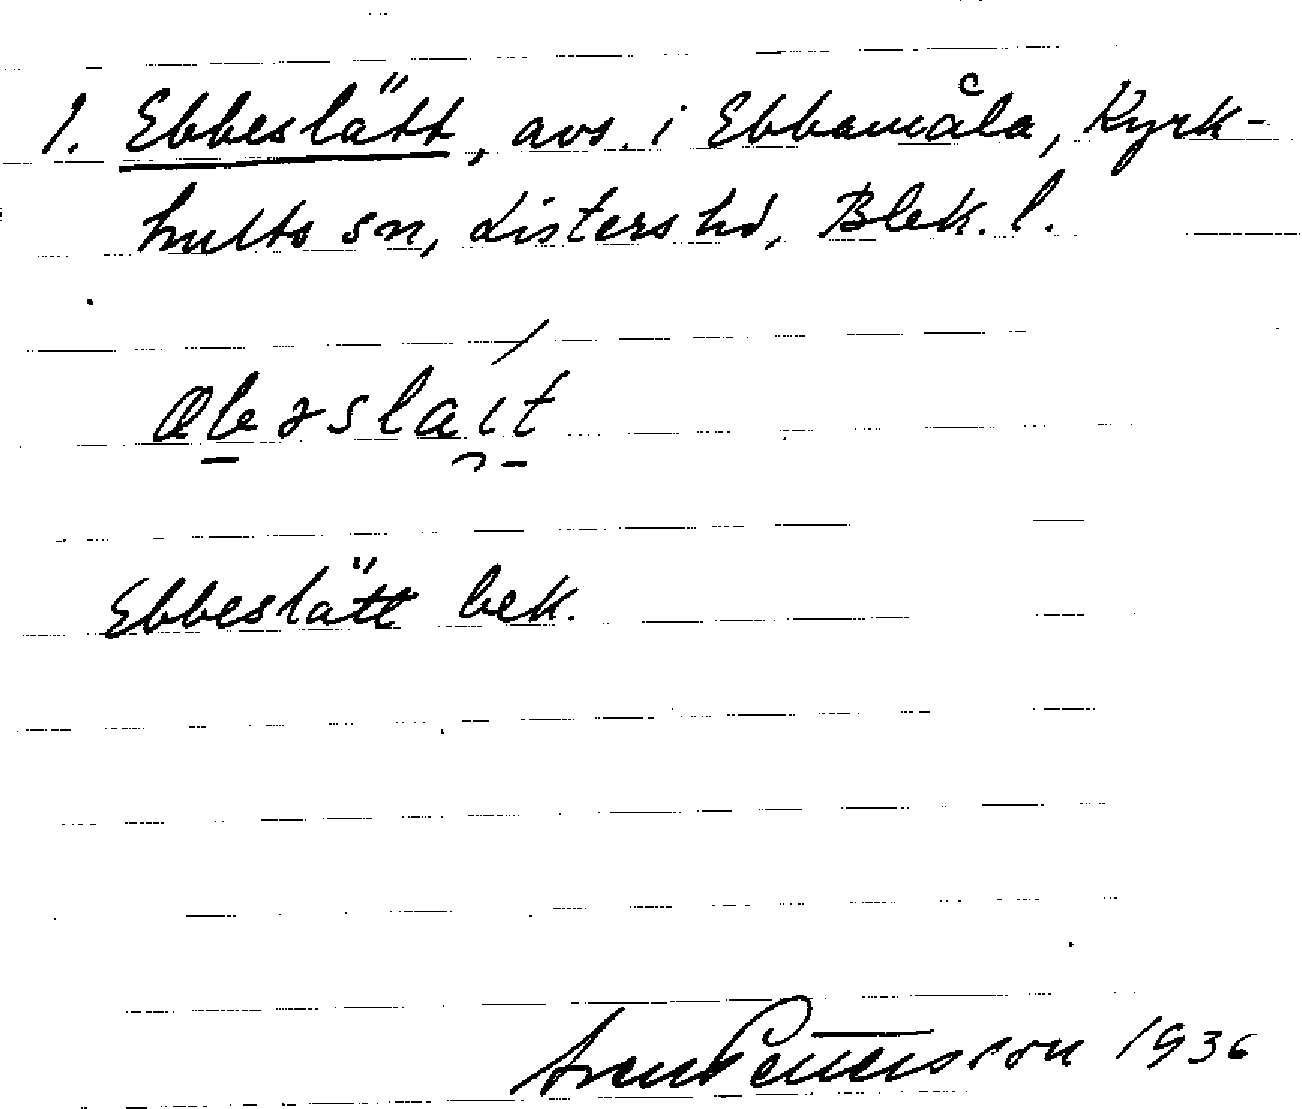 1. Ebbeslätt, avs. i Ebbamåla, Kyrk-
hults sn, Listers hd, Blek. l.
æbəslaɩt
Ebbeslätt bek.
Sven Pettersson 1936